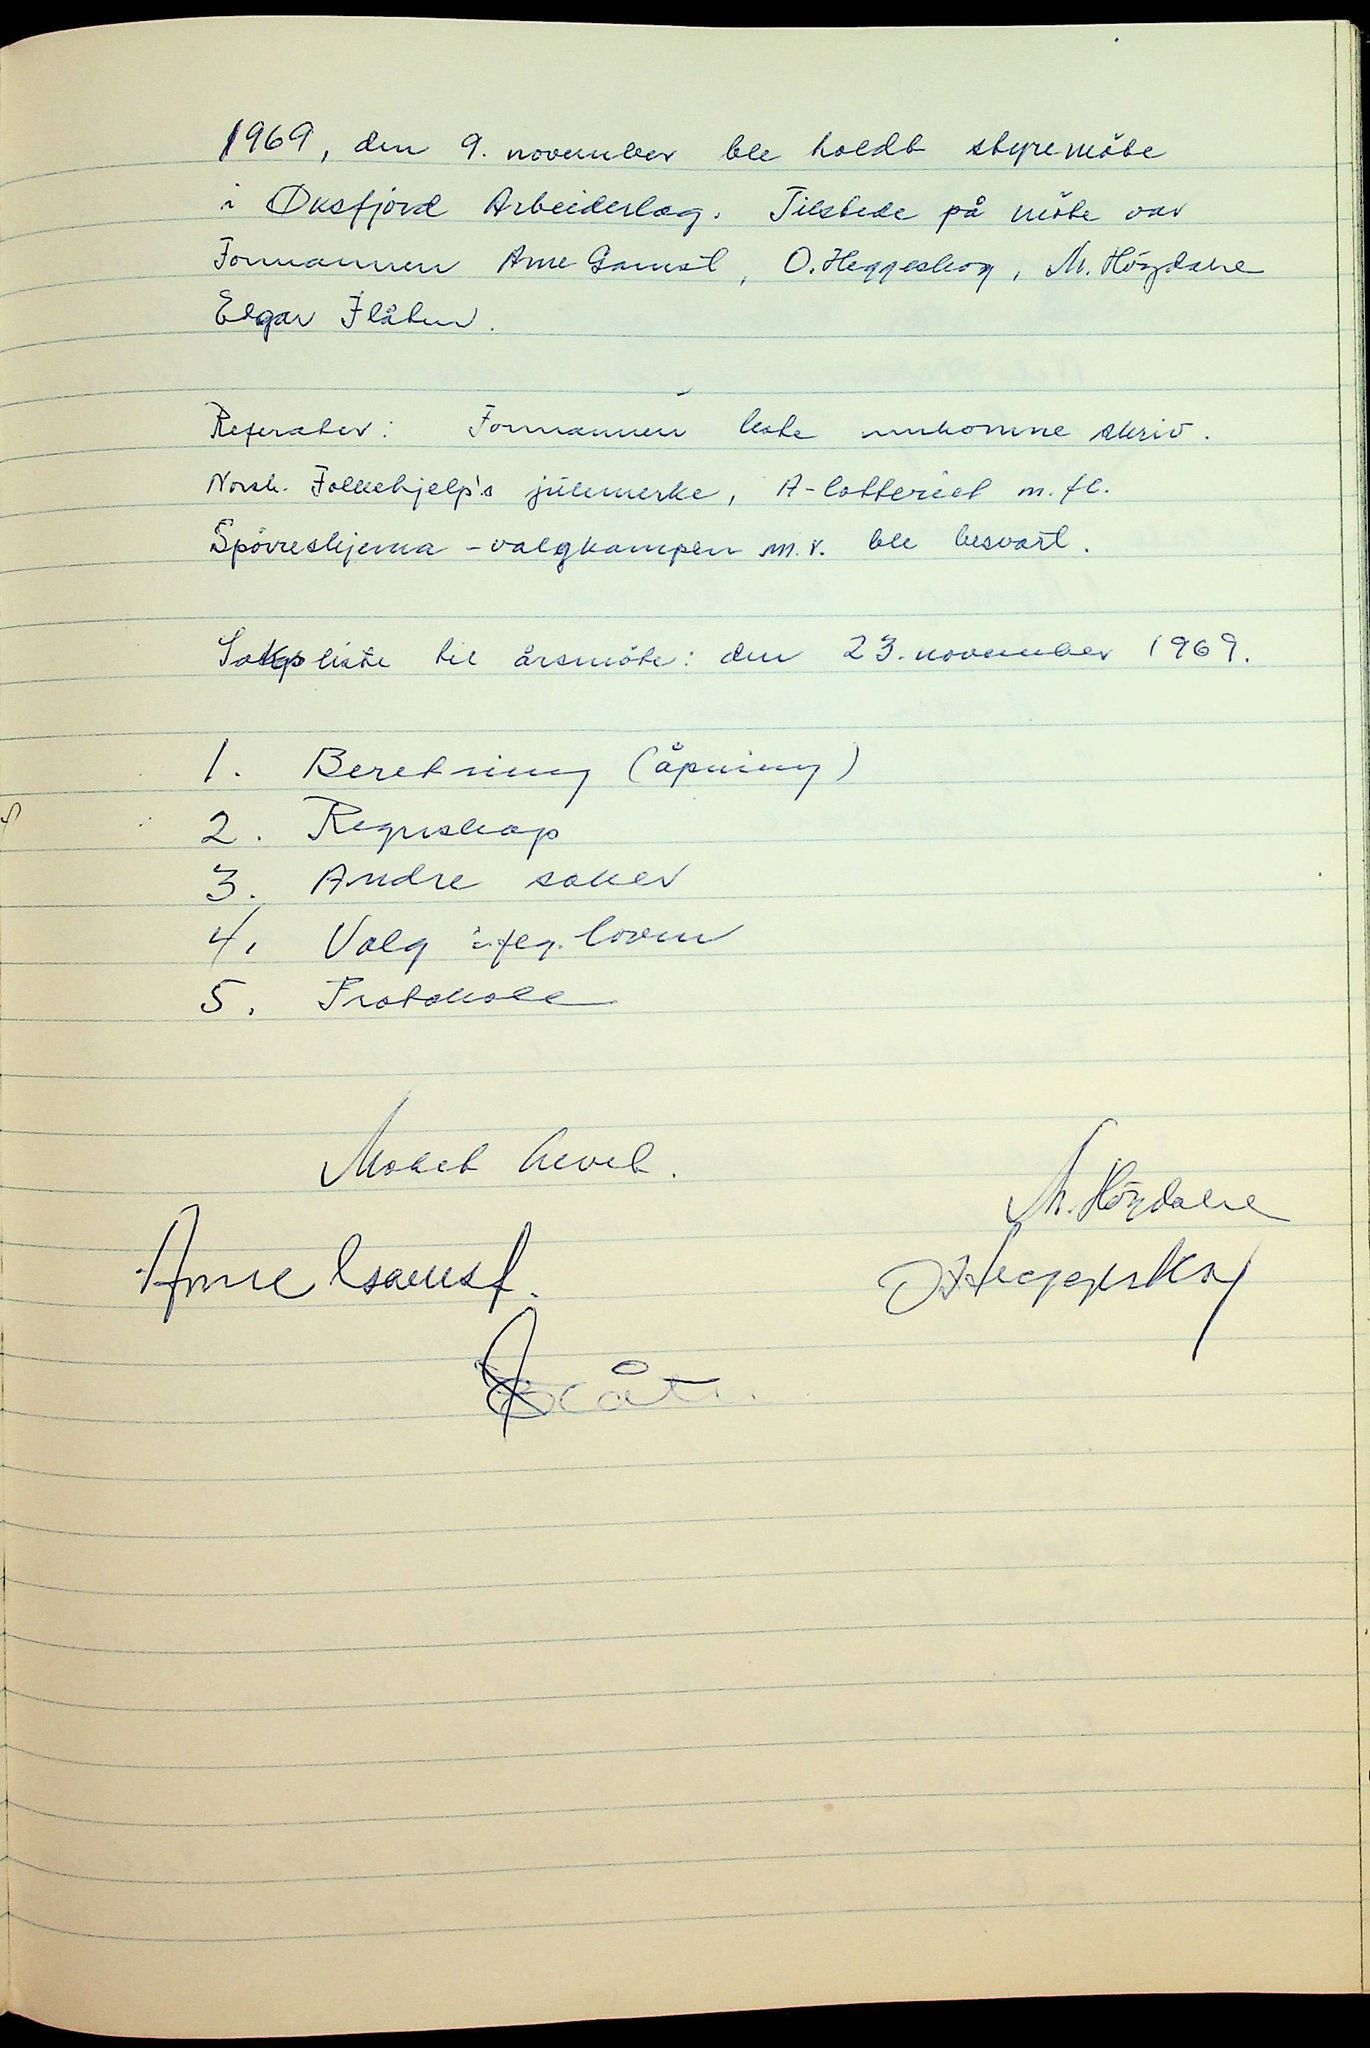 1969, den 9. november ble holdt styremöte
i Øksfjord Arbeiderlag. Tilstede på möte var
Formannen Arne Gamst, O. Heggeskog, M. Högdahl
Elgar Flåten.
Referater: Formannen leste innkomne skriv.
Norsk. Folkehjelp's julemerke, A-lotteriet m. fl.
Spörreskjema - valgkampen m.v. ble besvart.
Saksliste til årsmöte: den 23. november 1969.
1. Beretning (åpning)
2. Regnskap
3. Andre saker
4. Valg iflg. loven
5. Protokoll
Mötet hevet.
M. Högdahl
Arne Gamst.
O. Heggeskog
Flåten.